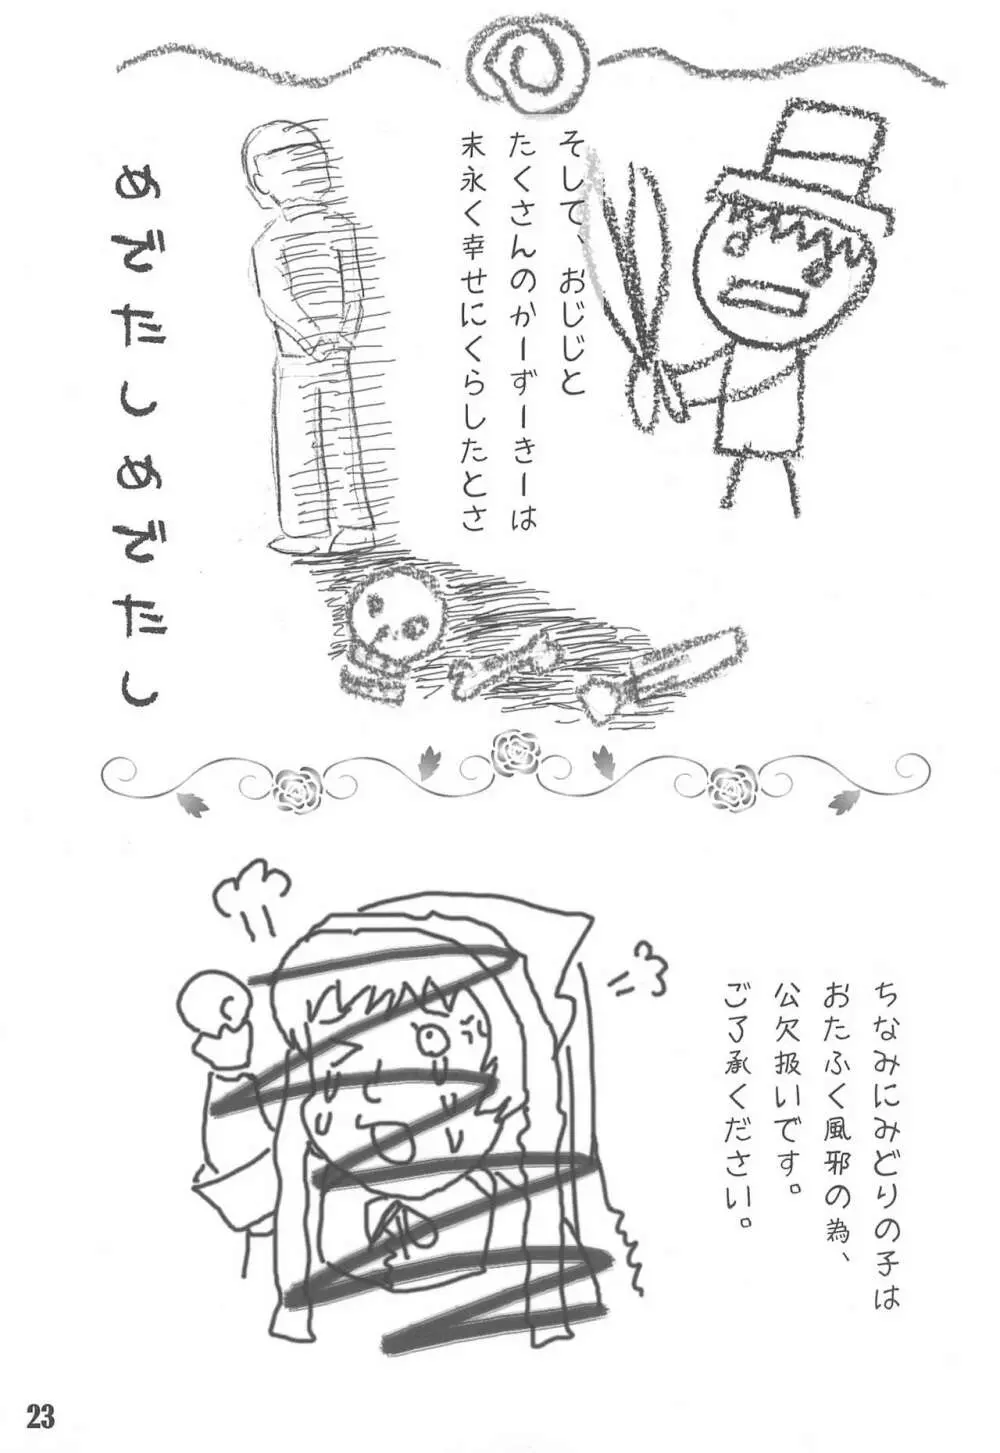 そして、おじじと
たくさんのかーずーきーは
末永く幸せにくらしたとさ
めでだしめでだし
ちなみにみどりの子は
おたふく風邪の為、
公欠扱いです。
ご了承ください。
23